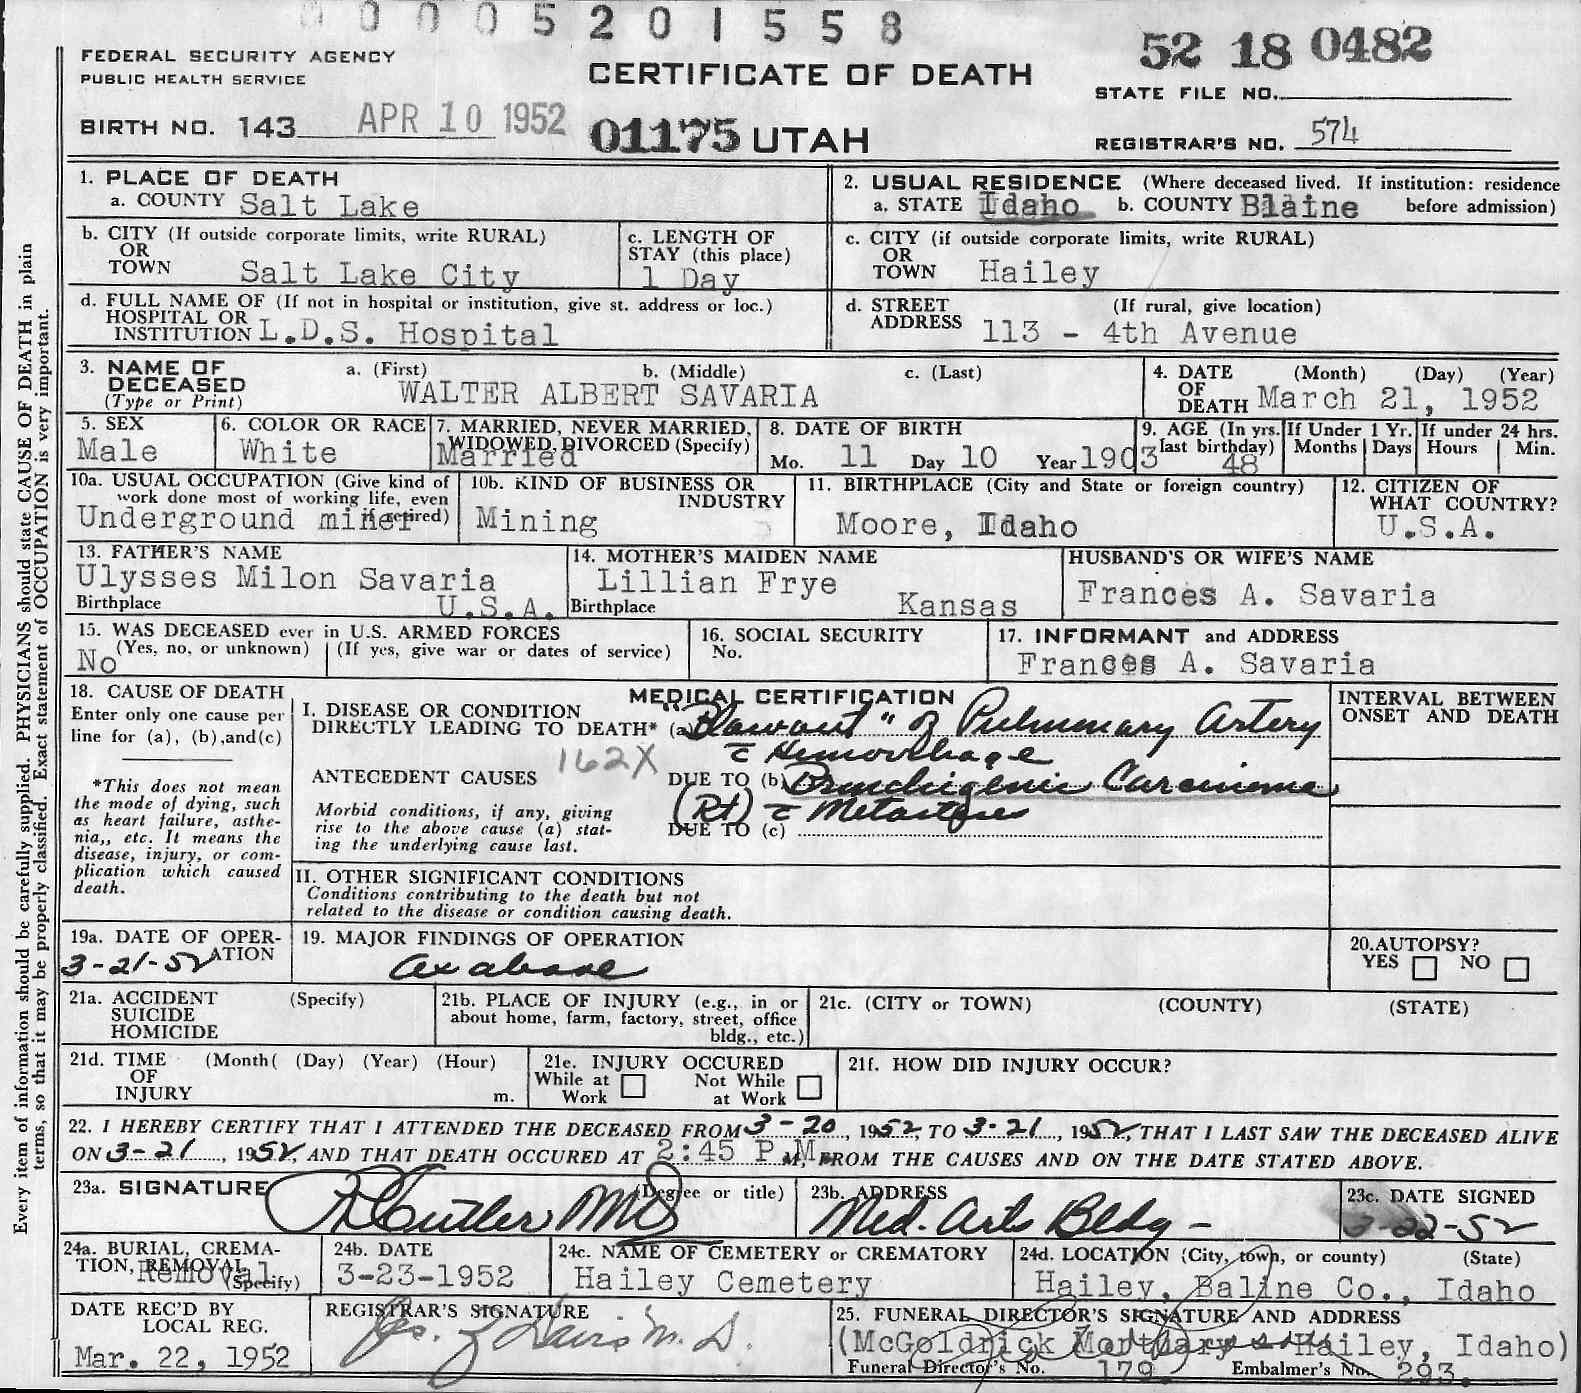 0005201558
52 18 0482
FEDERAL SECURITY AGENCY
PUBLIC HEALTH SERVICE
CERTIFICATE OF DEATH
STATE FILE NO.
BIRTH NO. 143 APR 10 1952 01175 UTAH
REGISTRAR'S NO. 574
Every item of information should be carefully supplied. PHYSICIANS should state CAUSE OF DEATH in plain
terms, so that it may be properly classified. Exact statement of OCCUPATION is very important.
1. PLACE OF DEATH
a. COUNTY Salt Lake
2. USUAL RESIDENCE (Where deceased lived. If institution: residence
a. STATE Idaho b. COUNTY Blaine before admission)
b. CITY (If outside corporate limits, write RURAL)
OR
TOWN Salt Lake City
c. LENGTH OF
STAY (this place)
1 Day
c. CITY (if outside corporate limits, write RURAL)
OR
TOWN Hailey
d. FULL NAME OF (If not in hospital or institution, give st. address or loc.)
HOSPITAL OR
INSTITUTION L.D.S. Hospital
d. STREET (If rural, give location)
ADDRESS 113 - 4th Avenue
3. NAME OF a. (First) b. (Middle) c. (Last)
DECEASED WALTER ALBERT SAVARIA
(Type or Print)
4. DATE (Month) (Day) (Year)
OF
DEATH March 21, 1952
5. SEX
Male
6. COLOR OR RACE
White
7. MARRIED, NEVER MARRIED,
WIDOWED, DIVORCED (Specify)
Married
8. DATE OF BIRTH
Mo. 11 Day 10 Year 1903
9. AGE (In yrs.
last birthday)
48
If Under 1 Yr.
Months Days
If under 24 hrs.
Hours Min.
10a. USUAL OCCUPATION (Give kind of
work done most of working life, even
if retired)
Underground miner
10b. KIND OF BUSINESS OR
INDUSTRY
Mining
11. BIRTHPLACE (City and State or foreign country)
Moore, Idaho
12. CITIZEN OF
WHAT COUNTRY?
U.S.A.
13. FATHER'S NAME
Ulysses Milon Savaria
Birthplace U.S.A.
14. MOTHER'S MAIDEN NAME
Lillian Frye
Birthplace Kansas
HUSBAND'S OR WIFE'S NAME
Frances A. Savaria
15. WAS DECEASED ever in U.S. ARMED FORCES
(Yes, no, or unknown) (If yes, give war or dates of service)
No
16. SOCIAL SECURITY
No.
17. INFORMANT and ADDRESS
Frances A. Savaria
18. CAUSE OF DEATH
Enter only one cause per
line for (a), (b),and(c)
*This does not mean
the mode of dying, such
as heart failure, asthe-
nia,, etc. It means the
disease, injury, or com-
plication which caused
death.
MEDICAL CERTIFICATION
I. DISEASE OR CONDITION
DIRECTLY LEADING TO DEATH* (a) "Blowout" of Pulmonary Artery
c Hemorrhage
162X
ANTECEDENT CAUSES DUE TO (b) Bronchiogenic Carcinoma
(Rt) c Metastases
Morbid conditions, if any, giving
rise to the above cause (a) stat-
ing the underlying cause last.
DUE TO (c)
INTERVAL BETWEEN
ONSET AND DEATH
II. OTHER SIGNIFICANT CONDITIONS
Conditions contributing to the death but not
related to the disease or condition causing death.
19a. DATE OF OPER-
ATION
3-21-52
19. MAJOR FINDINGS OF OPERATION
as above
20. AUTOPSY?
YES NO
21a. ACCIDENT (Specify)
SUICIDE
HOMICIDE
21b. PLACE OF INJURY (e.g., in or
about home, farm, factory, street, office
bldg., etc.)
21c. (CITY or TOWN) (COUNTY) (STATE)
21d. TIME (Month( (Day) (Year) (Hour)
OF
INJURY m.
21e. INJURY OCCURED
While at Work Not While at Work
21f. HOW DID INJURY OCCUR?
22. I HEREBY CERTIFY THAT I ATTENDED THE DECEASED FROM 3-20, 1952, TO 3-21, 1952, THAT I LAST SAW THE DECEASED ALIVE
ON 3-21, 1952, AND THAT DEATH OCCURED AT 2:45 P.M. M, FROM THE CAUSES AND ON THE DATE STATED ABOVE.
23a. SIGNATURE (Degree or title)
Cutler MD
23b. ADDRESS
Med. Arts Bldg -
23c. DATE SIGNED
3-22-52
24a. BURIAL, CREMA-
TION, REMOVAL
(Specify)
Removal
24b. DATE
3-23-1952
24c. NAME OF CEMETERY or CREMATORY
Hailey Cemetery
24d. LOCATION (City, town, or county) (State)
Hailey, Baline Co., Idaho
DATE REC'D BY
LOCAL REG.
Mar. 22, 1952
REGISTRAR'S SIGNATURE
Davis M.D.
25. FUNERAL DIRECTOR'S SIGNATURE AND ADDRESS
(McGoldrick Mortuary Hailey, Idaho)
Funeral Director's No. 179. Embalmer's No. 293.